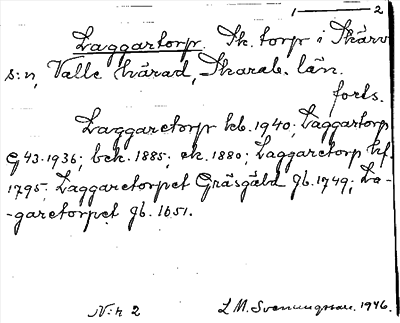 1——2
Laggartorp. Sk. torp i Skärv
s:n, Valle härad, Skarab. län.
forts.
Laggaretorp kb. 1940; Laggartorp
G 43. 1936; bek. 1885; ek. 1880; Laggaretorp hf.
1795; Laggaretorpet Gräsgäld gb. 1749; La-
-garetorpet gb. 1651.
N:r 2 L M. Svenungsson. 1946.